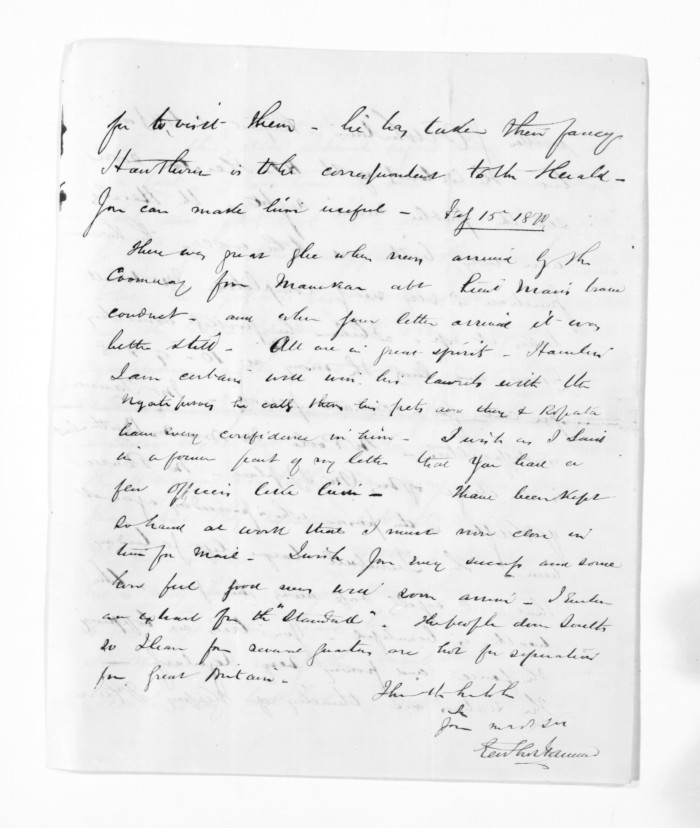 for to visit them - he has taken their fancy
Hawthorn is the correspondent to the Herald -
You can make him useful - Feb 15 1870
There was great glee when news arrived by the
from abt Lieut Mair's brave
conduct - and when your letter arrived it was
better still - All are in great spirits - Hamlin
I am certain will win his laurels with the
Ngatiporou he calls them his pets and they & Ropata
have every confidence in him - I wish as I said
in a former part of my letter that you had a
few officers like him - I have been kept
so hard at work that I must now close in
time for mail - I wish you every success and some
how feel good news will soon arrive - I enclose
an extract from the "Standard". The people down South
so I hear from several quarters are not for separation
from Great Britain -

I am
Yours